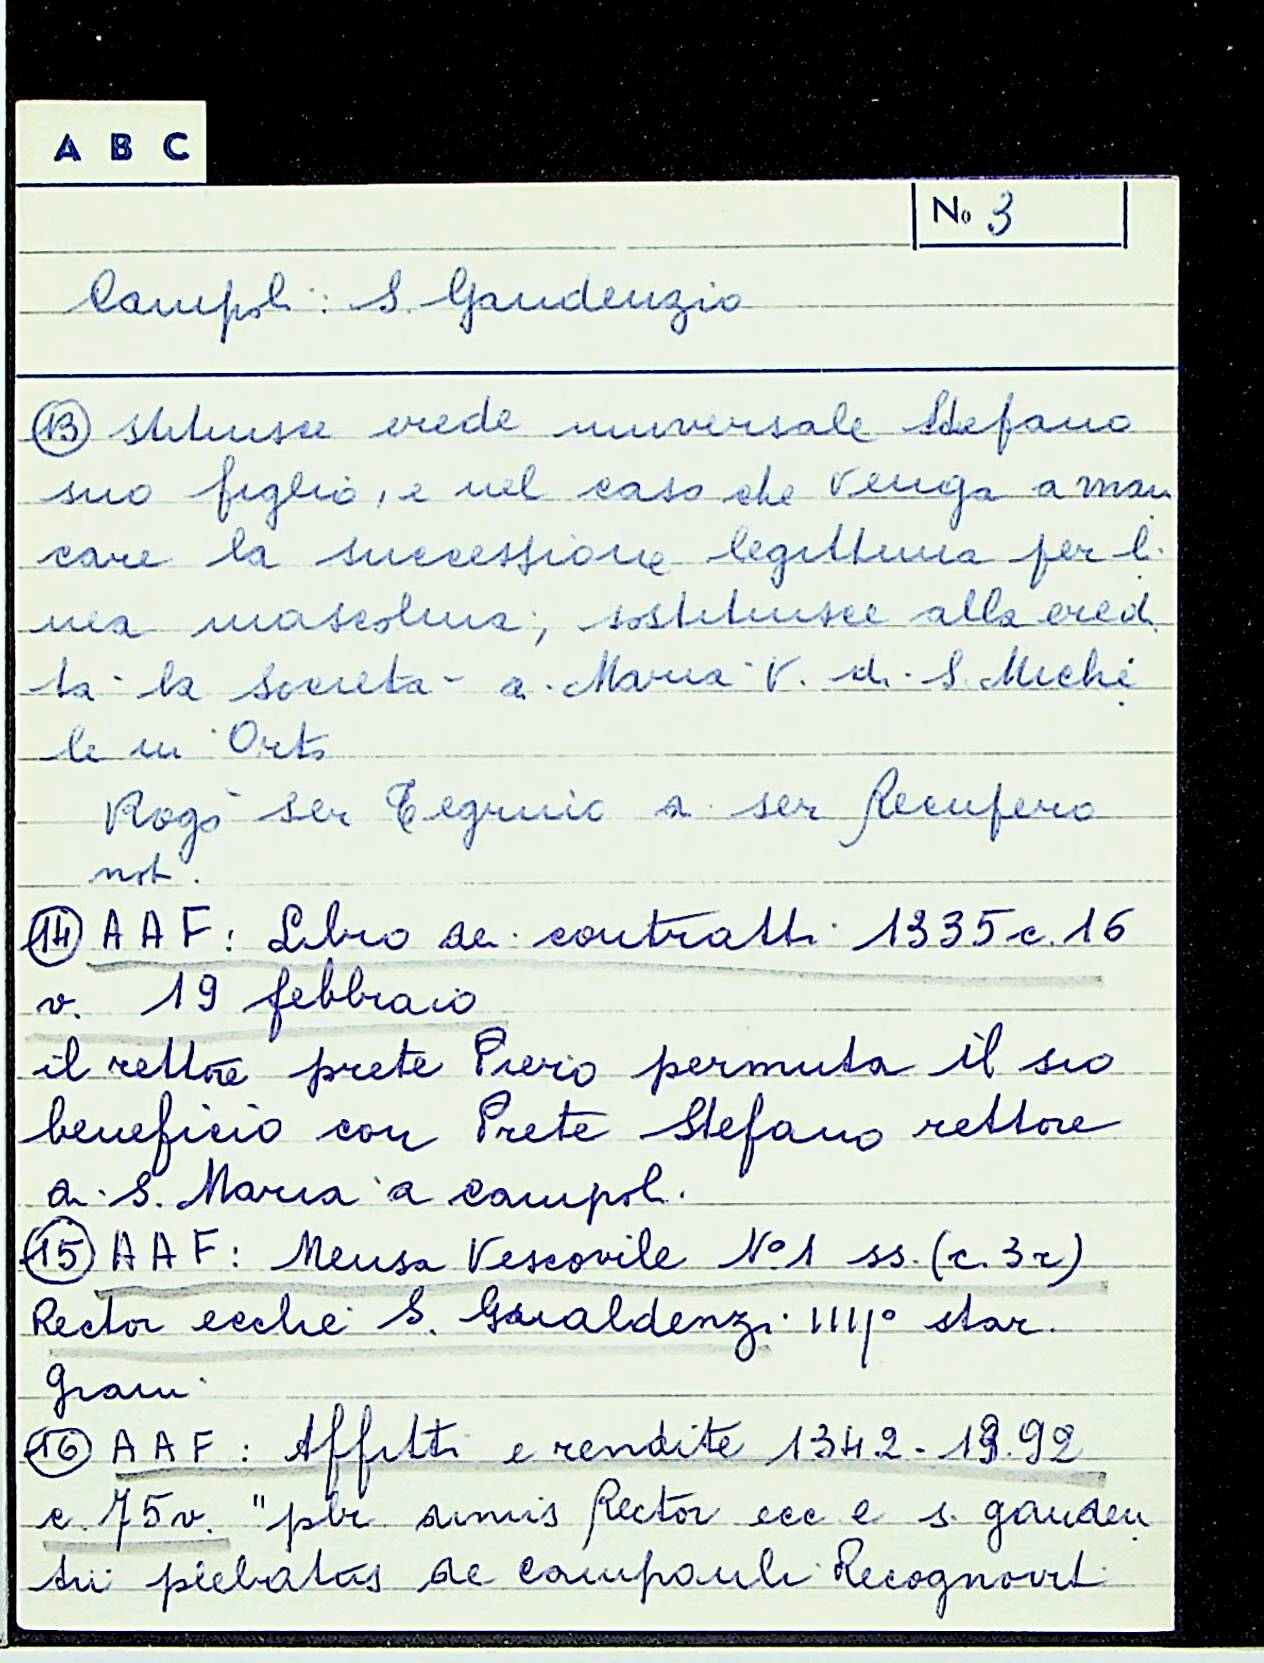 A B C
No 3
Campoli: S. Gaudenzio
(13) stituisce erede universale Stefano
suo figlio, e nel caso che venga a man
care la successione legittima per li
nea mascolina; sostituisce alla eredi
tà la società di Maria V. di S. Miche
le in Orto
Rogò ser Tegrimo di ser Recupero
not.
(14) AAF: Libro dei contratti 1335 c. 16
v. 19 febbraio
il rettore prete Piero permuta il suo
beneficio con Prete Stefano rettore
di S. Maria a Campoli.
(15) AAF: Mensa Vescovile No 1 ss. (c. 3r)
Rector ecclie S. Gaualdenzi IIIIo star.
Grani
(16) AAF: Affitti e rendite 1342-1392
c. 75v. "pbr Rector ecc e s. gauden
tii plebatus de campauli Recognovit